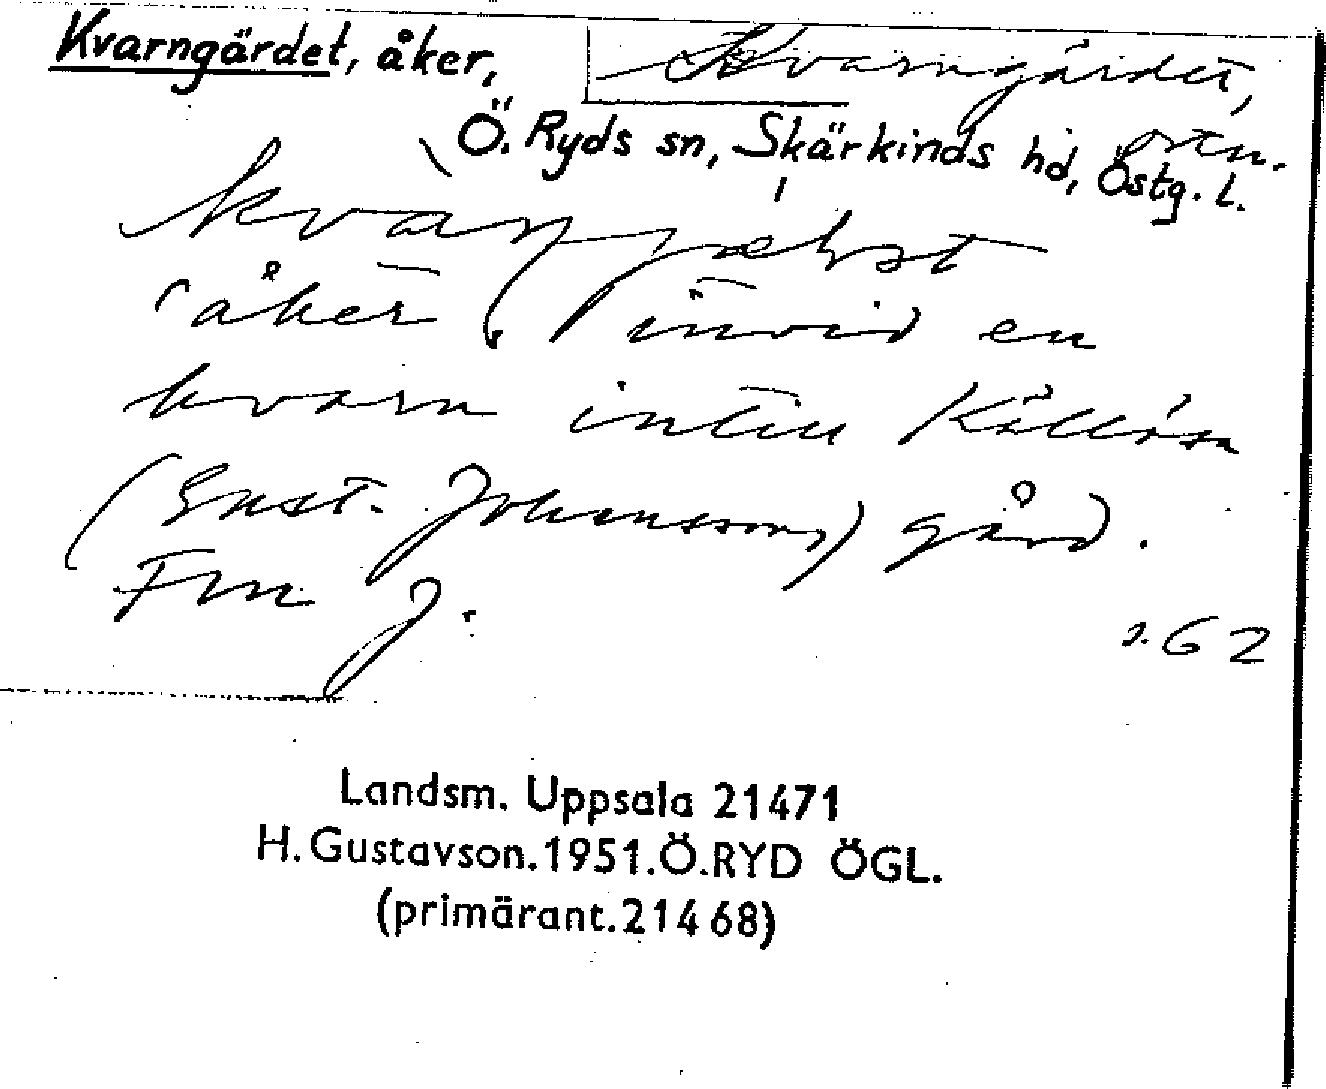 Kvarngärdet, åker,
Kvarngärdet,
Ö. Ryds sn, Skärkinds hd, Östg. L.
åker invid en
kvarn intill
(Gust. Johanssons) gård.
Fm J.
s. 62
Landsm. Uppsala 21471
H. Gustavson. 1951. Ö. RYD ÖGL.
(primärant. 21468)